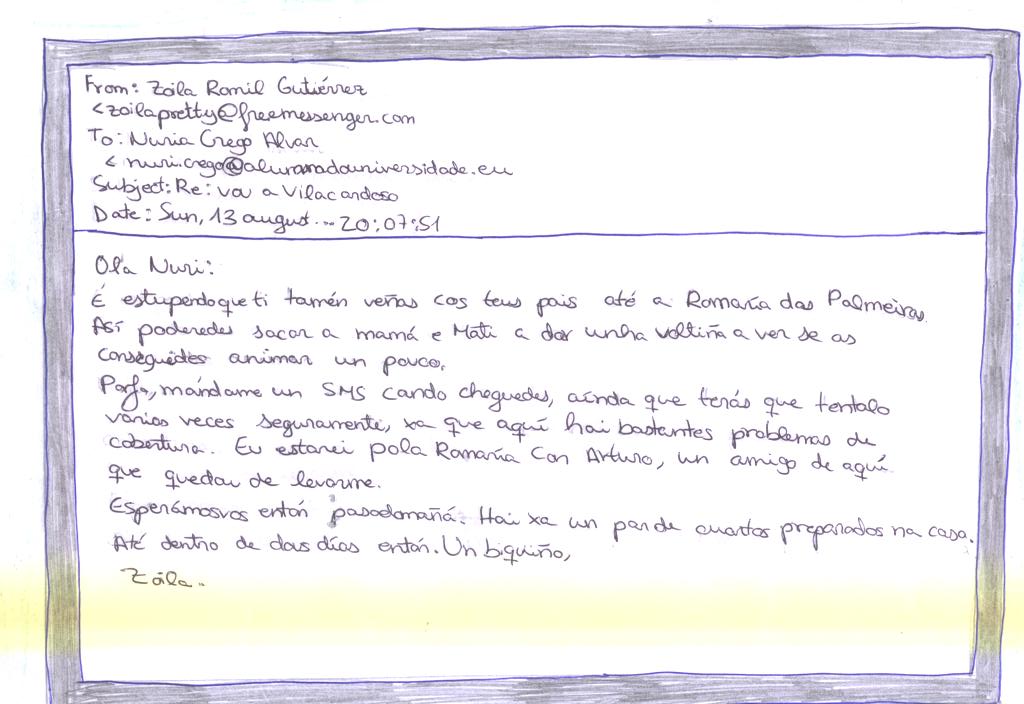 From: Zoila Romil Gutiérrez
<zoilapretty@freemessenger.com
To: Nuria Crego Alvar
< nuri.crego@alumnadouniversidade.eu
Subject: Re: vou a Vilacardoso
Date: Sun, 13 august... 20:07:51
Ola Nuri:
É estupendo que ti tamén veñas cos teus pais até a Romaría das Palmeiras.
Así poderedes sacar a mamá e Mati a dar unha voltiña a ver se as
conseguides animar un pouco.
Porfa, mándame un SMS cando cheguedes, aínda que terás que tentalo
varias veces seguramente, xa que aquí hai bastantes problemas de
cobertura. Eu estarei pola Romaría con Arturo, un amigo de aquí
que quedou de levarme.
Esperámosvos entón pasadomañá. Hai xa un par de cuartos preparados na casa.
Até dentro de dous días entón. Un biquiño,
Zoila.